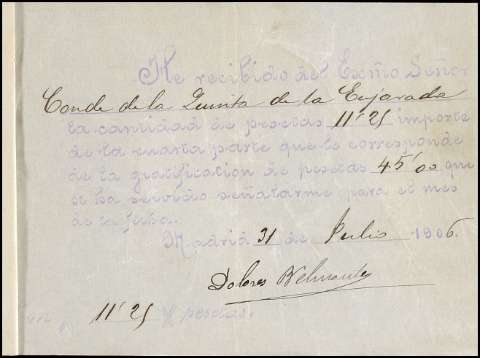 He recibido del Exmo Señor
Conde de la Quinta de la Enjarada
la cantidad de pesetas 11'25 importe
de la cuarta parte que le corresponde
de la gratificación de pesetas 45'00 que
se ha servido señalarme para el mes
de la fecha.
Madrid 31 de Julio 1906.
Dolores Belmonte
11'25 pesetas.